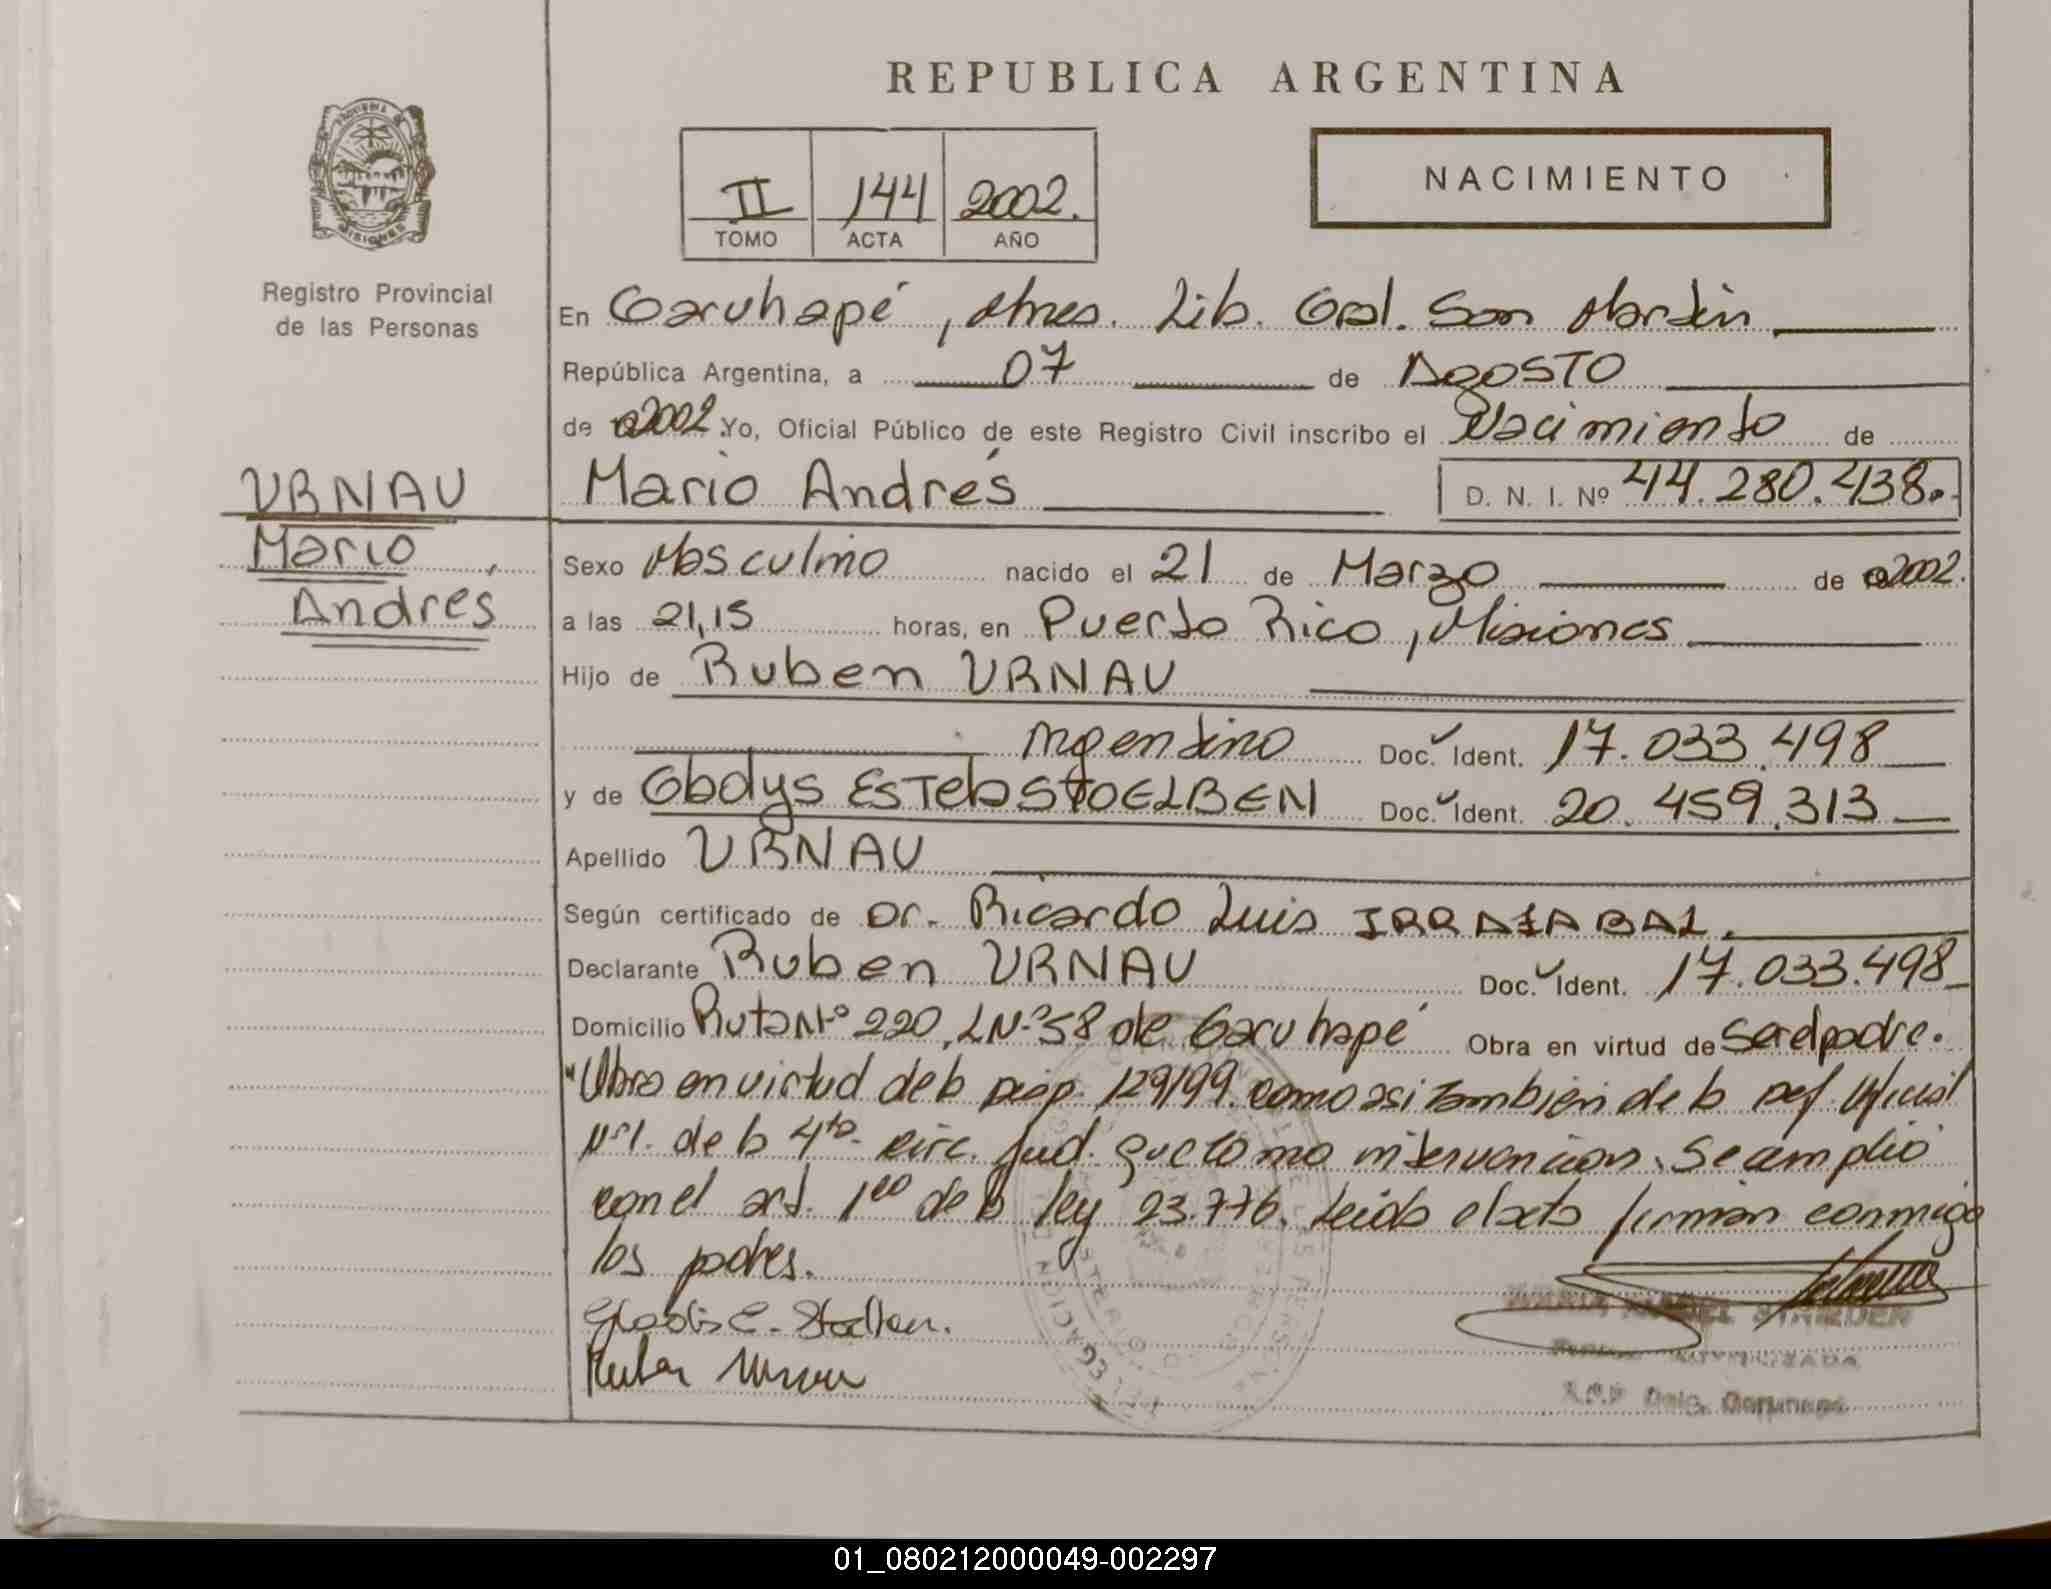 REPUBLICA ARGENTINA
II 144 2002.
TOMO ACTA AÑO
NACIMIENTO
PROVINCIA DE MISIONES
Registro Provincial
de las Personas
En Garuhapé, Mnes. Lib. Gral. San Martin
República Argentina, a 07 de AgOSTO
de 2002. Yo, Oficial Público de este Registro Civil inscribo el Nacimiento de
URNAU
Mario Andrés D. N. I. Nº 44.280.438.
Mario,
Andres
Sexo Masculino nacido el 21 de Marzo de 2002.
a las 21,15 horas, en Puerto Rico, Misiones
Hijo de Ruben URNAU
Argentino Doc. Ident. 17.033.498
y de Gladys Estela STOELBEN Doc. Ident. 20.459.313
Apellido URNAU
Según certificado de Dr. Ricardo Luis IRRAZABAL.
Declarante Ruben URNAU Doc. Ident. 17.033.498
Domicilio Ruta Nº 220, LNº 58 de Garuhapé Obra en virtud de Ser el padre.
"Obra en virtud de la Disp. 129/99. como asi tambien de la Def. Oficial
Nº 1. de la 4ta. Circ. Jud. que tomo intervencion. Se cumplio
con el art. 1ro de la ley 23.776. Leida el acta firman conmigo
los padres.
Ruben Urnau
AUTORIZADA
01_080212000049-002297